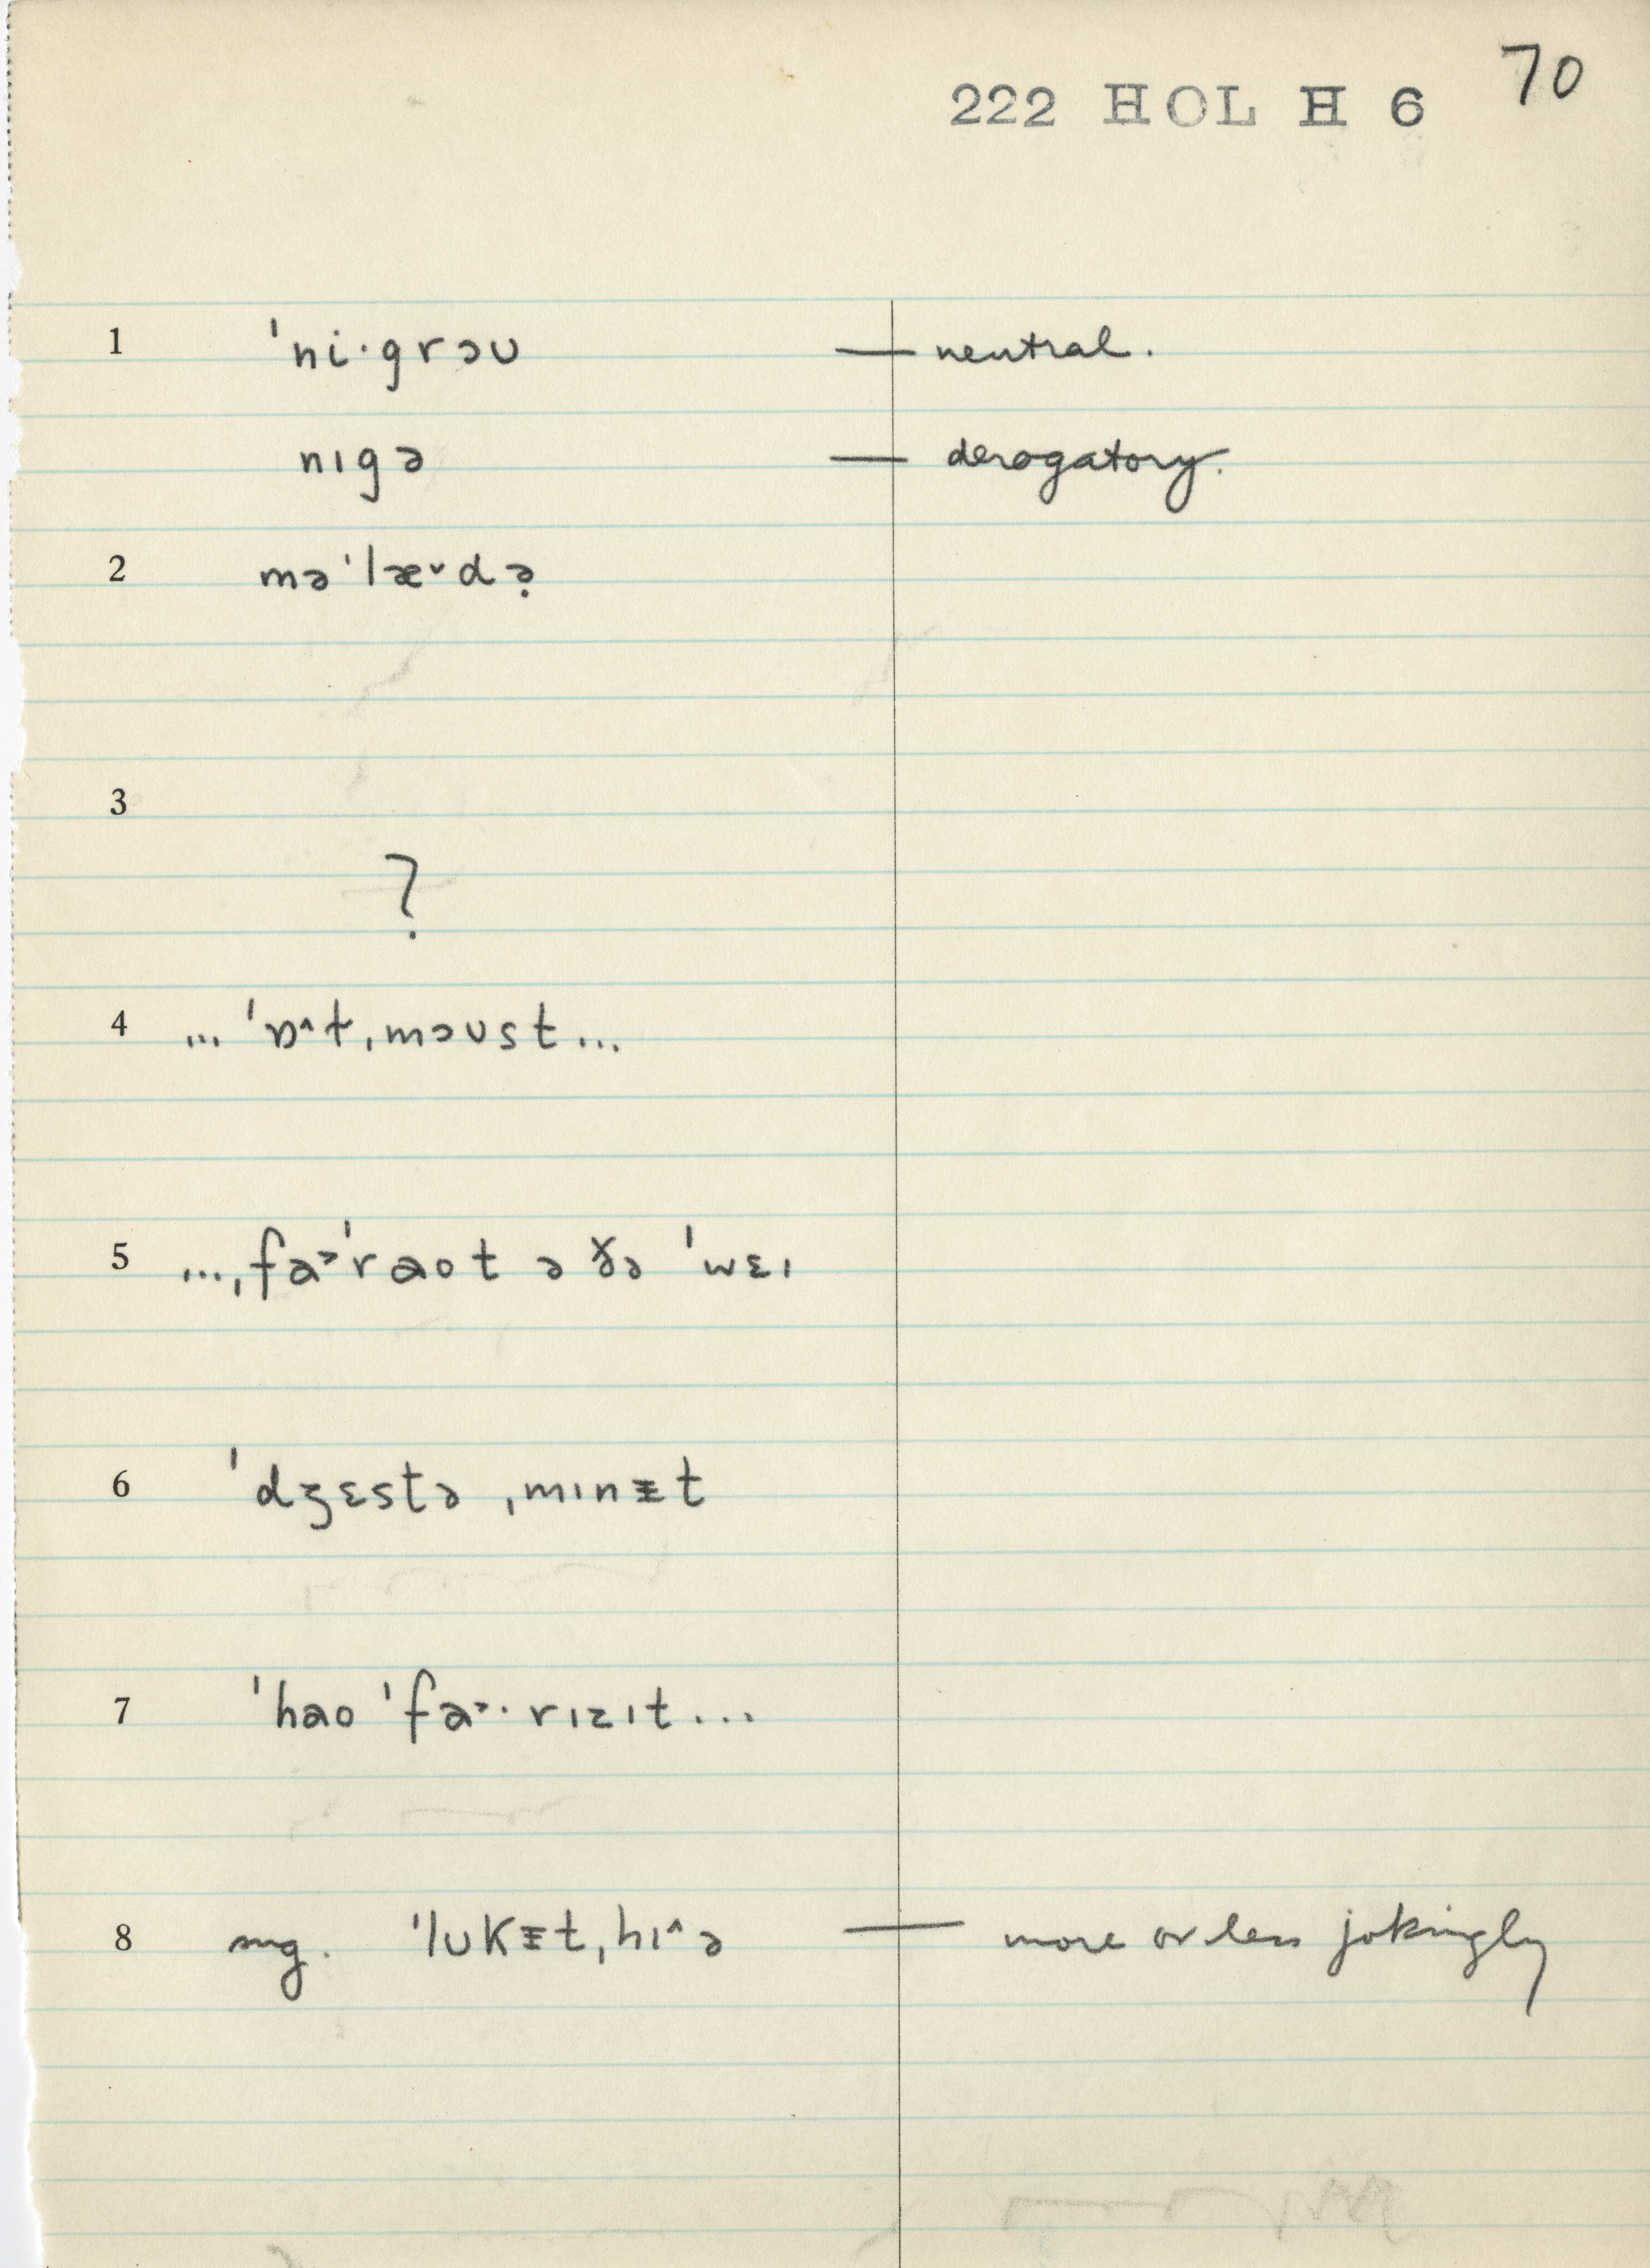 222 HOL H 6 70
1 ˈni·grəʊ — neutral.
nɪgə — derogatory.
2 məˈlæ˅də̣
3
?
4 ... ˈɒ˄t,məʊst...
5 ...,fa˃ˈraot ə ðə ˈwɛɪ
6 ˈdʒɛstə ,mɪnɪ̵t
7 ˈhao ˈfa˃·rɪzɪt...
8 sug. ˈlʊkɪ̵t,hɪ˄ə — more or less jokingly